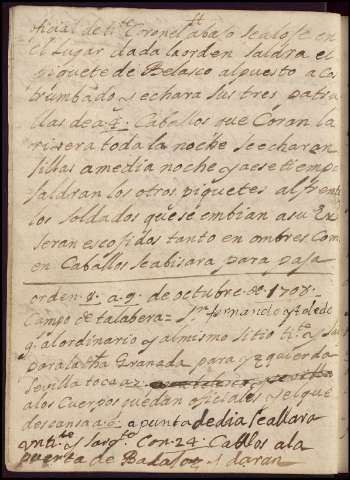 oficial de tte Coronel abajo se aloje en
el Lugar dada la orden saldra el
piquete de Belasco al puesto acos
trumbado y echara sus tres patru
llas de a 4 Caballos que Coran la
rivera toda la noche se echaran
sillas a media noche y a ese tiempo
saldran los otros piquetes al frente
los soldados que se embian a su
seran escojidos tanto en ombres Com
en Caballos se abisara para pasa
orden 8 a 9 de octubre de 1708
Campo de talabera = Sn fernando y toledo
gl al ordinario y al mismo sitio tte
para la dha Granada para yzquierda
Sevilla toca a 2
a los Cuerpos quedan oficiales y el que
descansa a 6 a punta de dia se allara
un tte y sargto Con 24 Caballos a la
puerta de Badajoz daran